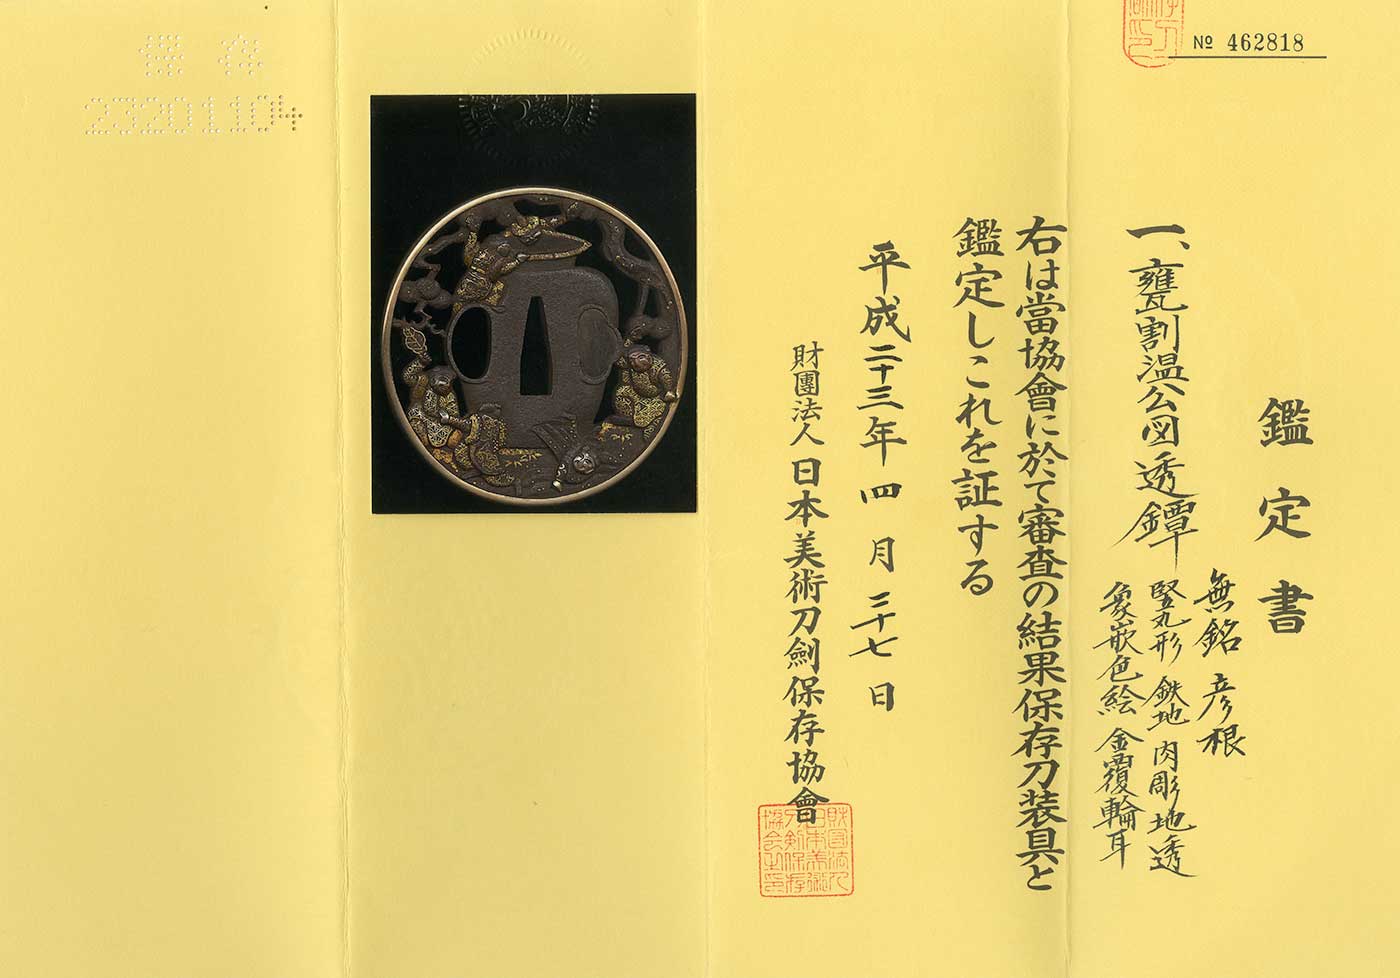 No 462818
鑑定書
一、甕割温公図透鐔
無銘 彦根
竪丸形 鉄地 肉彫地透
象嵌色絵 金覆輪耳
右は當協會に於て審査の結果保存刀装具と
鑑定しこれを証する
平成二十三年四月二十七日
財團法人日本美術刀劍保存協會
財団法人
日本美術
刀剣保存
協会之印
保存
23201104